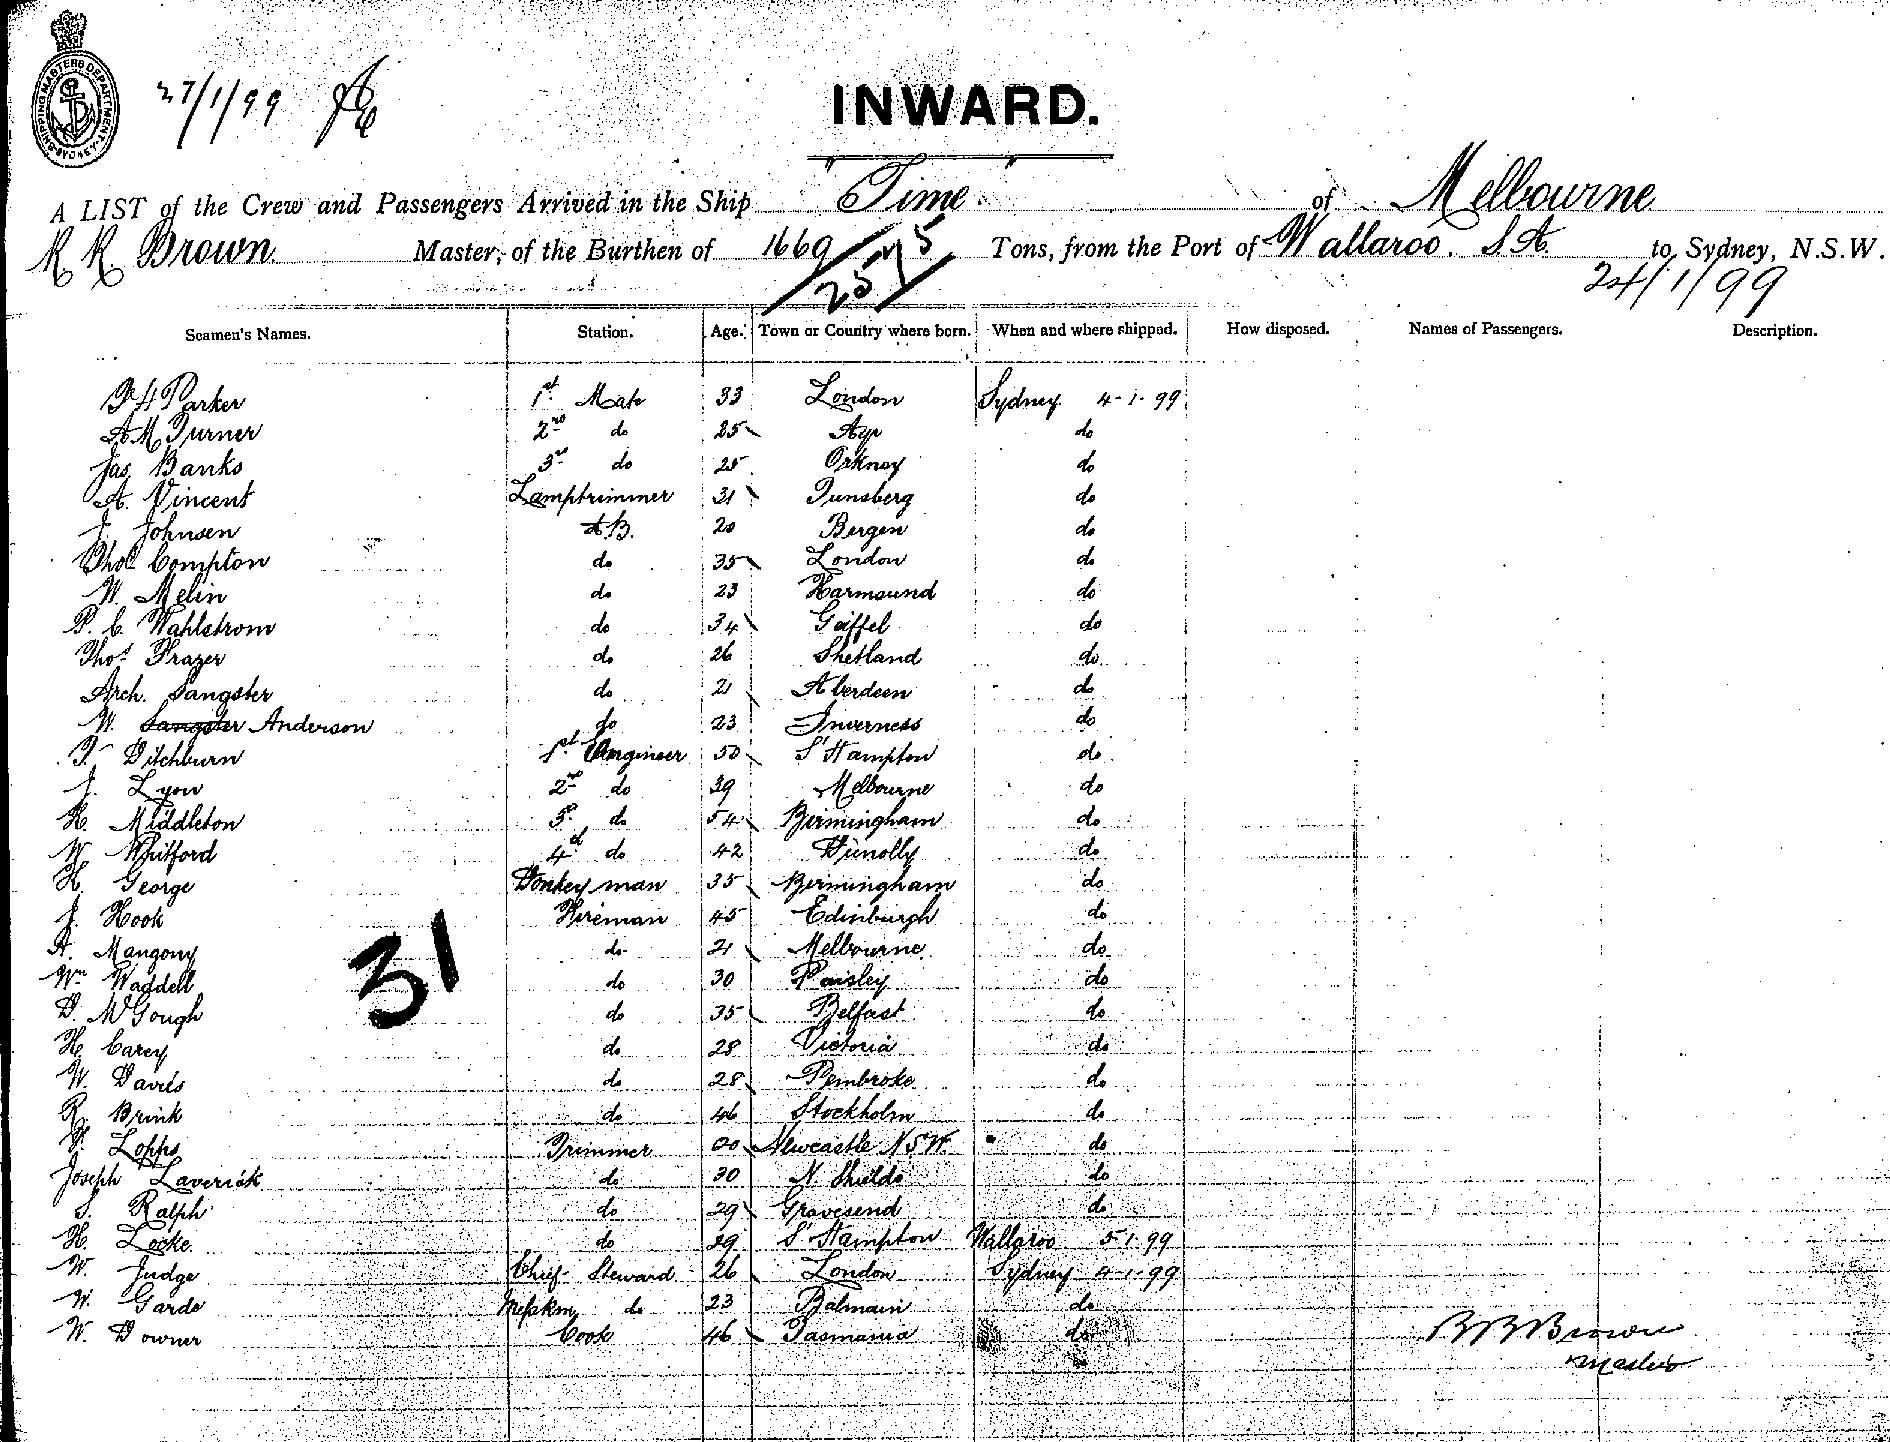 SHIPPING MASTERS DEPARTMENT SYDNEY
27/1/99
INWARD.
A LIST of the Crew and Passengers Arrived in the Ship Time of Melbourne
Brown Master, of the Burthen of 1669 Tons, from the Port of Wallaroo. S.A. to Sydney, N.S.W.
2575
24/1/99
Seamen's Names. Station. Age. Town or Country where born. When and where shipped. How disposed. Names of Passengers. Description.
Parker 1st Mate 33 London Sydney 4-1-99
A M Turner 2nd do 25 Ayr do
Jas Banks 3rd do 25 Orkney do
A. Vincent Lamptrimmer 31 Tunsberg do
J. Johnsen A.B. 20 Bergen do
Thos Compton do 35 London do
W. Melin do 23 do
P. C. Wahlstrom do 34 do
Thos Frazer do 26 Shetland do
Arch. Sangster do 21 Aberdeen do
W. Sangster Anderson do 23 Inverness do
Ditchburn 1st Engineer 50 S'Hampton do
J. Lyon 2nd do 39 Melbourne do
H. Middleton 3rd do 54 Birmingham do
W. Whitford 4th do 42 Dunolly do
H. George Donkeyman 35 Birmingham do
J. Hook Fireman 45 Edinburgh do
A. Mangony do 21 Melbourne do
Wm Waddell do 30 Paisley do
D. McGough do 35 Belfast do
H. Carey do 28 Victoria do
W. Davies do 28 Pembroke do
R. Brink do 46 Stockholm do
Lopps Trimmer Newcastle N.S.W. do
Joseph Laverick do 30 N. Shields do
S. Ralph do 29 Gravesend do
H. Locke do 29 S'Hampton Wallaroo 5-1-99
W. Judge Chief Steward 26 London Sydney 4-1-99
W. Garde Messrm do 23 Balmain do
W. Downer Cook 46 Tasmania do
31
Brown
Master